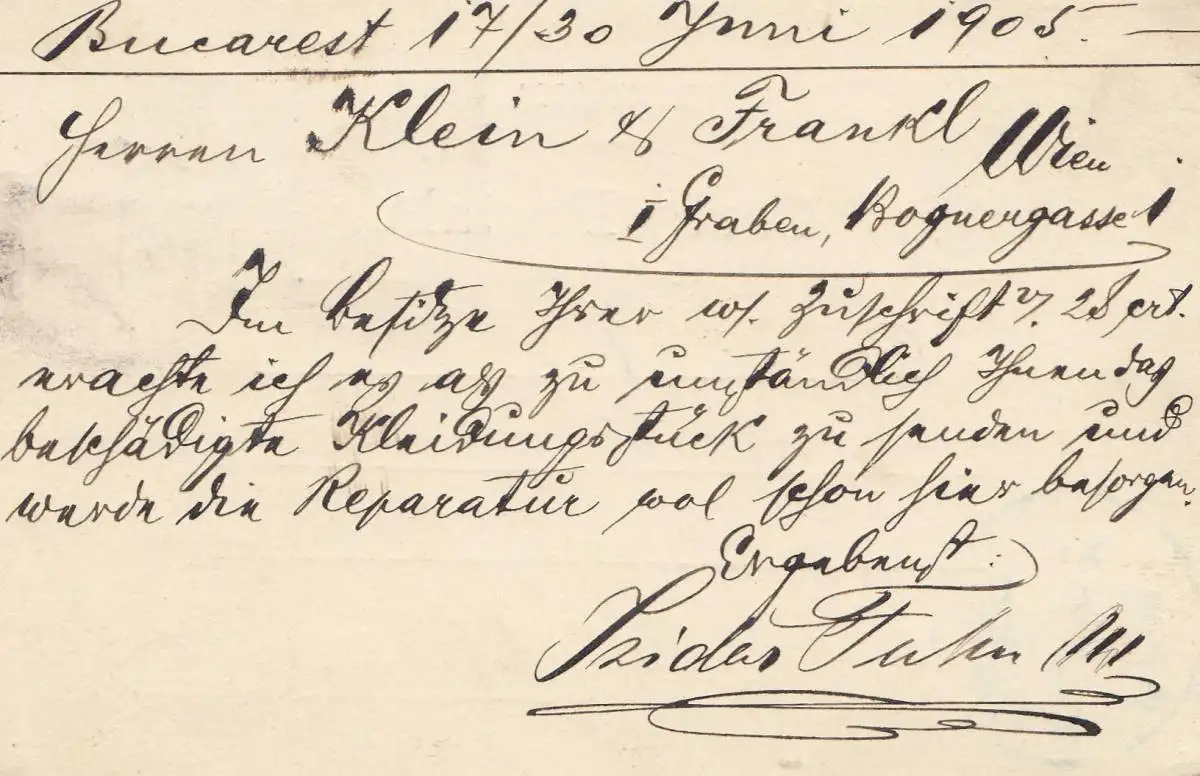 Bucarest 17/30 Juni 1905.
Herren Klein & Frankl Wien
I Graben, Bognergasse 1
Im Besitze Ihrer w. Zuschrift v. 28 crt.
erachte ich es als zu umständlich Ihnen das
beschädigte Kleidungsstück zu senden und
werde die Reparatur wol schon hier besorgen.
Ergebenst
Isidor